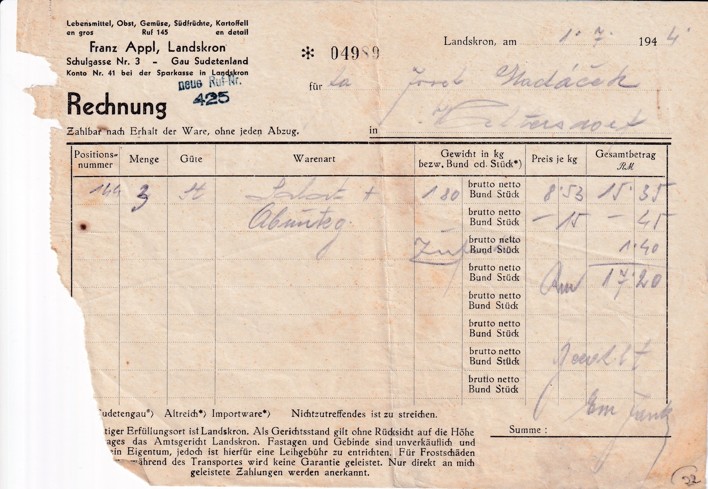 Lebensmittel, Obst, Gemüse, Südfrüchte, Kartoffell
en gros Ruf 145 en detail
Franz Appl, Landskron
Schulgasse Nr. 3 - Gau Sudetenland
Konto Nr. 41 bei der Sparkasse in Landskron
neue Ruf-Nr.
425
* 04989
Landskron, am 1. 7. 1944
für Fa Josef
Rechnung
Zahlbar nach Erhalt der Ware, ohne jeden Abzug.
in
Positions-nummer Menge Güte Warenart Gewicht in kg bezw. Bund od. Stück*) Preis je kg Gesamtbetrag RM.
164 3 St 180 brutto netto Bund Stück 8·53 15·35
brutto netto Bund Stück -15 -45
brutto netto Bund Stück 1·40
brutto netto Bund Stück Rm 17·20
brutto netto Bund Stück
brutto netto Bund Stück
brutto netto Bund Stück
brutto netto Bund Stück
udetengau*) Altreich*) Importware*) Nichtzutreffendes ist zu streichen.
Summe :
tiger Erfüllungsort ist Landskron. Als Gerichtsstand gilt ohne Rücksicht auf die Höhe
ages das Amtsgericht Landskron. Fastagen und Gebinde sind unverkäuflich und
ein Eigentum, jedoch ist hierfür eine Leihgebühr zu entrichten. Für Frostschäden
während des Transportes wird keine Garantie geleistet. Nur direkt an mich
geleistete Zahlungen werden anerkannt.
22